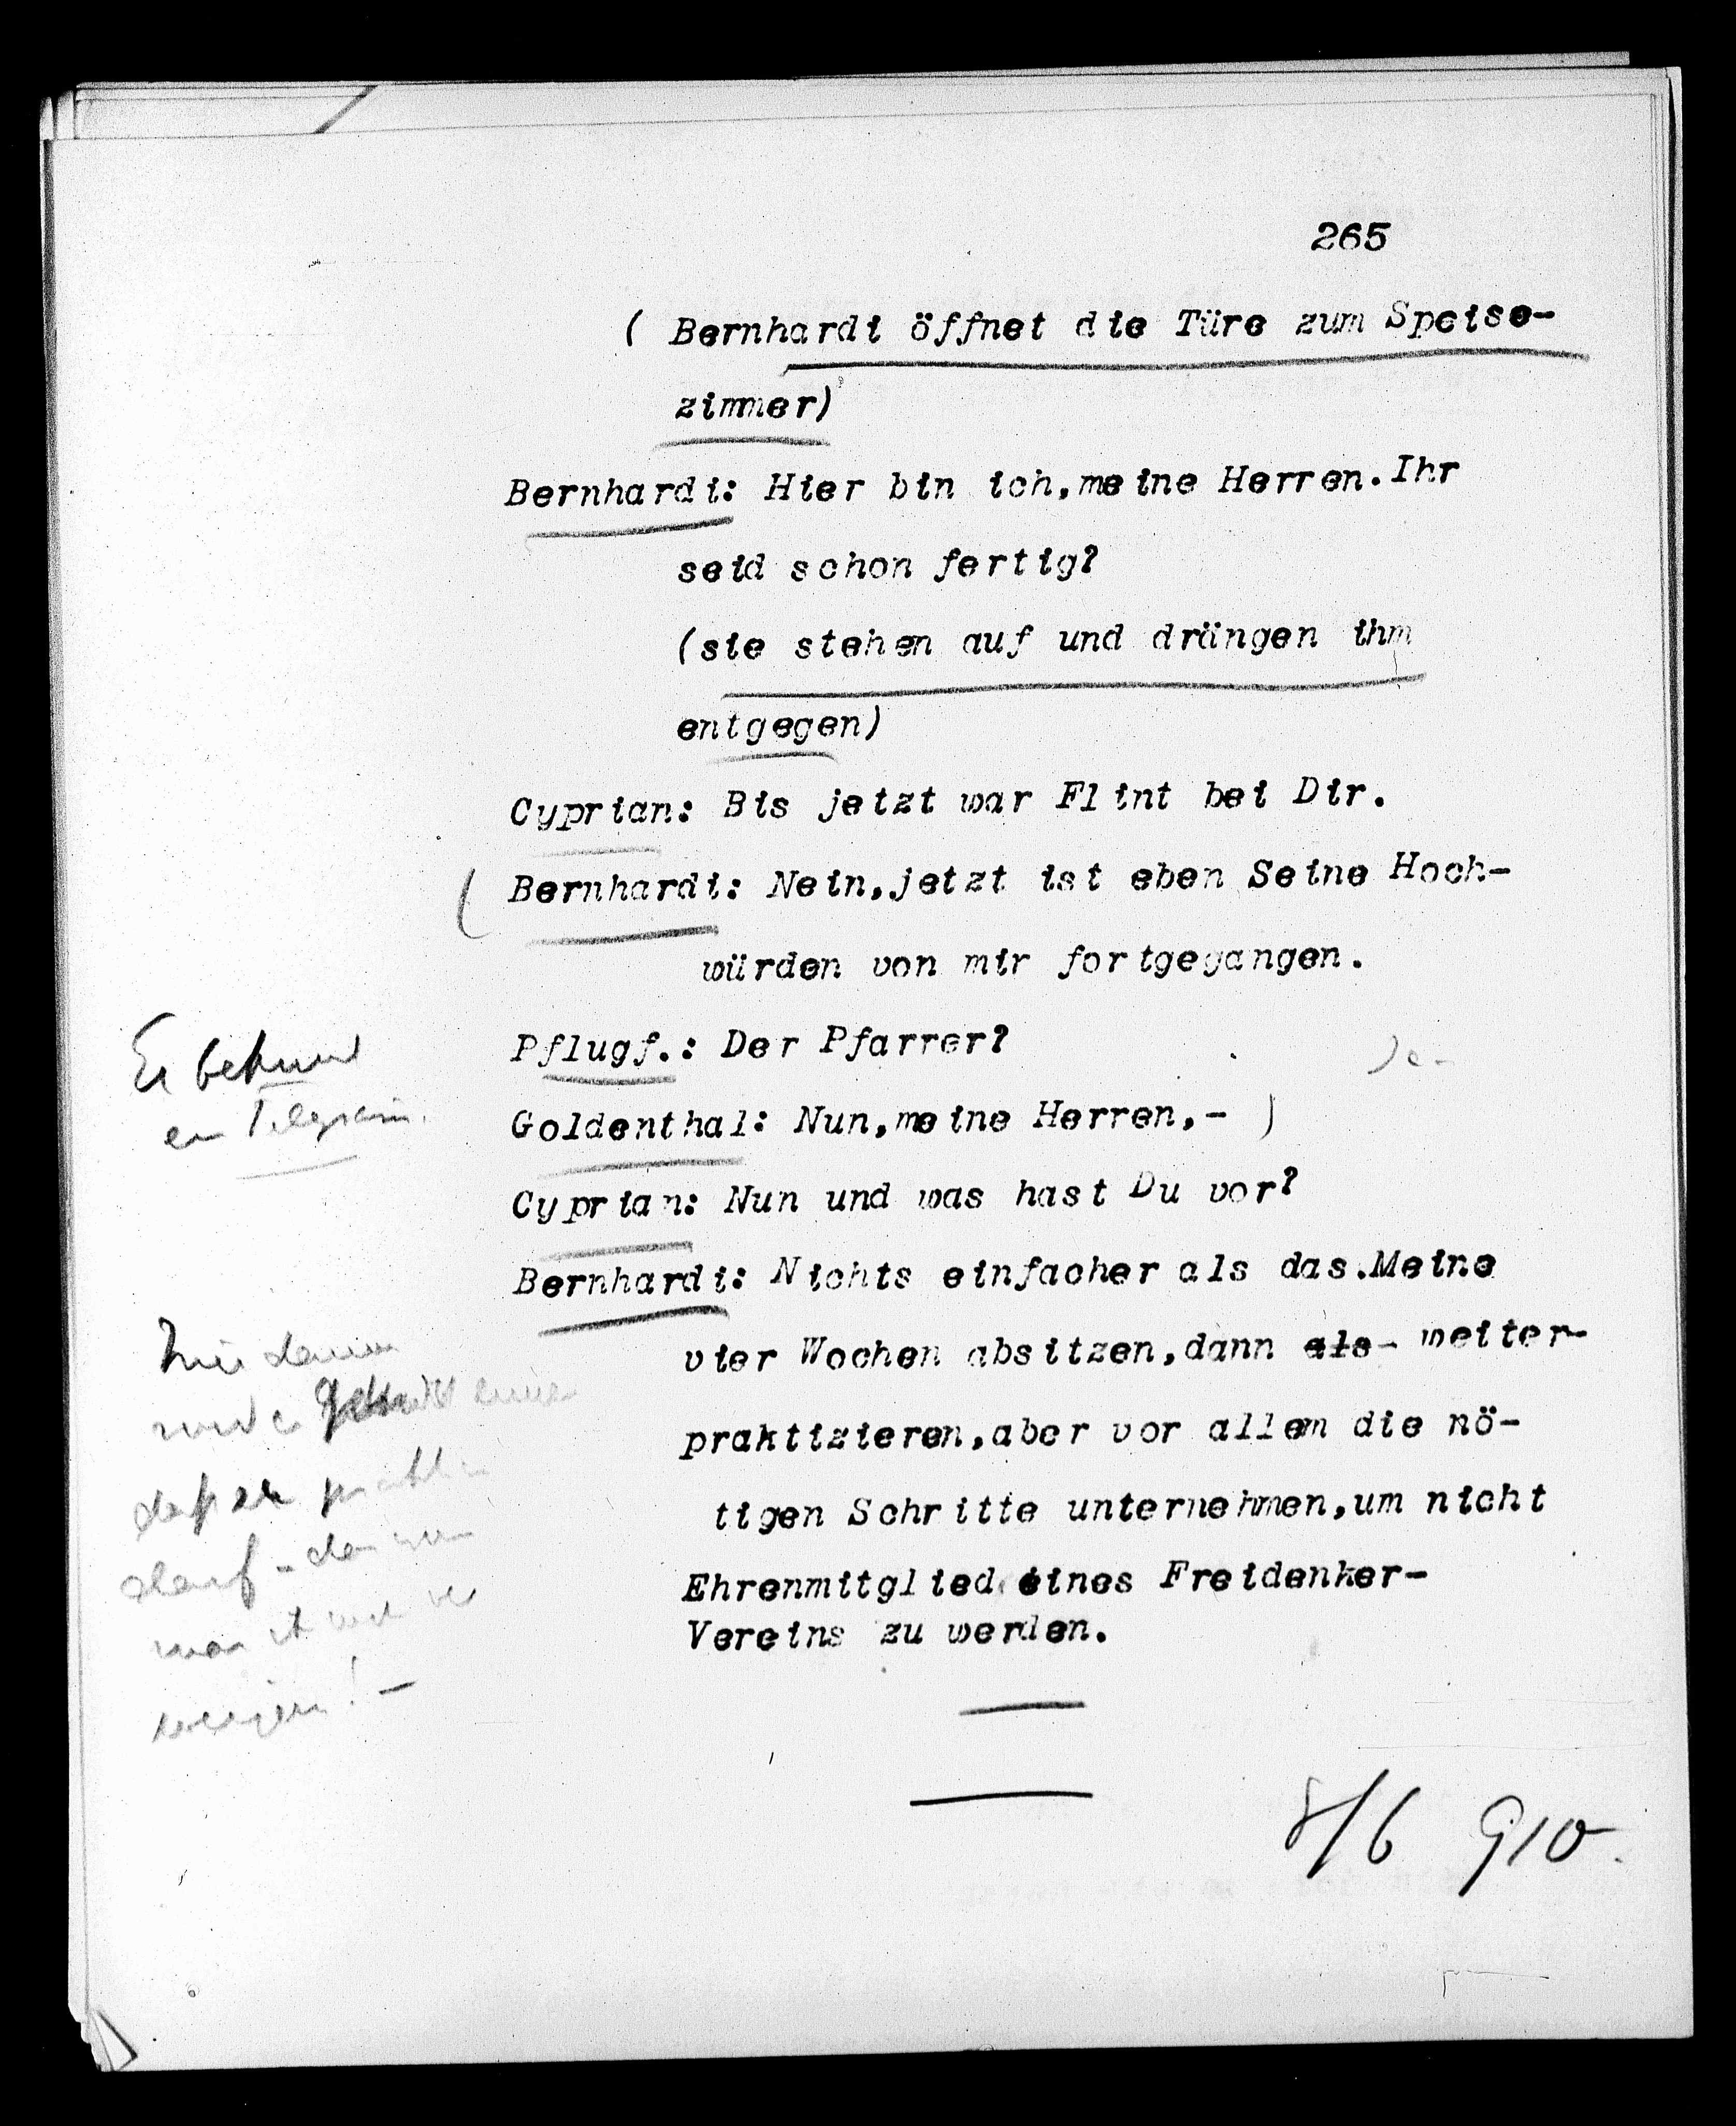 265
( Bernhardi öffnet die Türe zum Speise-
zimmer)
Bernhardi: Hier bin ich,meine Herren.Ihr
seid schon fertig?
(sie stehen auf und drängen ihm
entgegen)
Cyprian: Bis jetzt war Flint bei Dir.
( Bernhardi: Nein,jetzt ist eben Seine Hoch-
würden von mir fortgegangen.
Pflugf.: Der Pfarrer?
Goldenthal: Nun,meine Herren,- )
Cyprian: Nun und was hast Du vor?
Bernhardi: Nichts einfacher als das.Meine
vier Wochen absitzen,dann als- weiter-
praktizieren,aber vor allem die nö-
tigen Schritte unternehmen,um nicht
Ehrenmitglied eines Freidenker-
Vereins zu werden.
Er bekommt
ein Telegramm.
8/6 910.